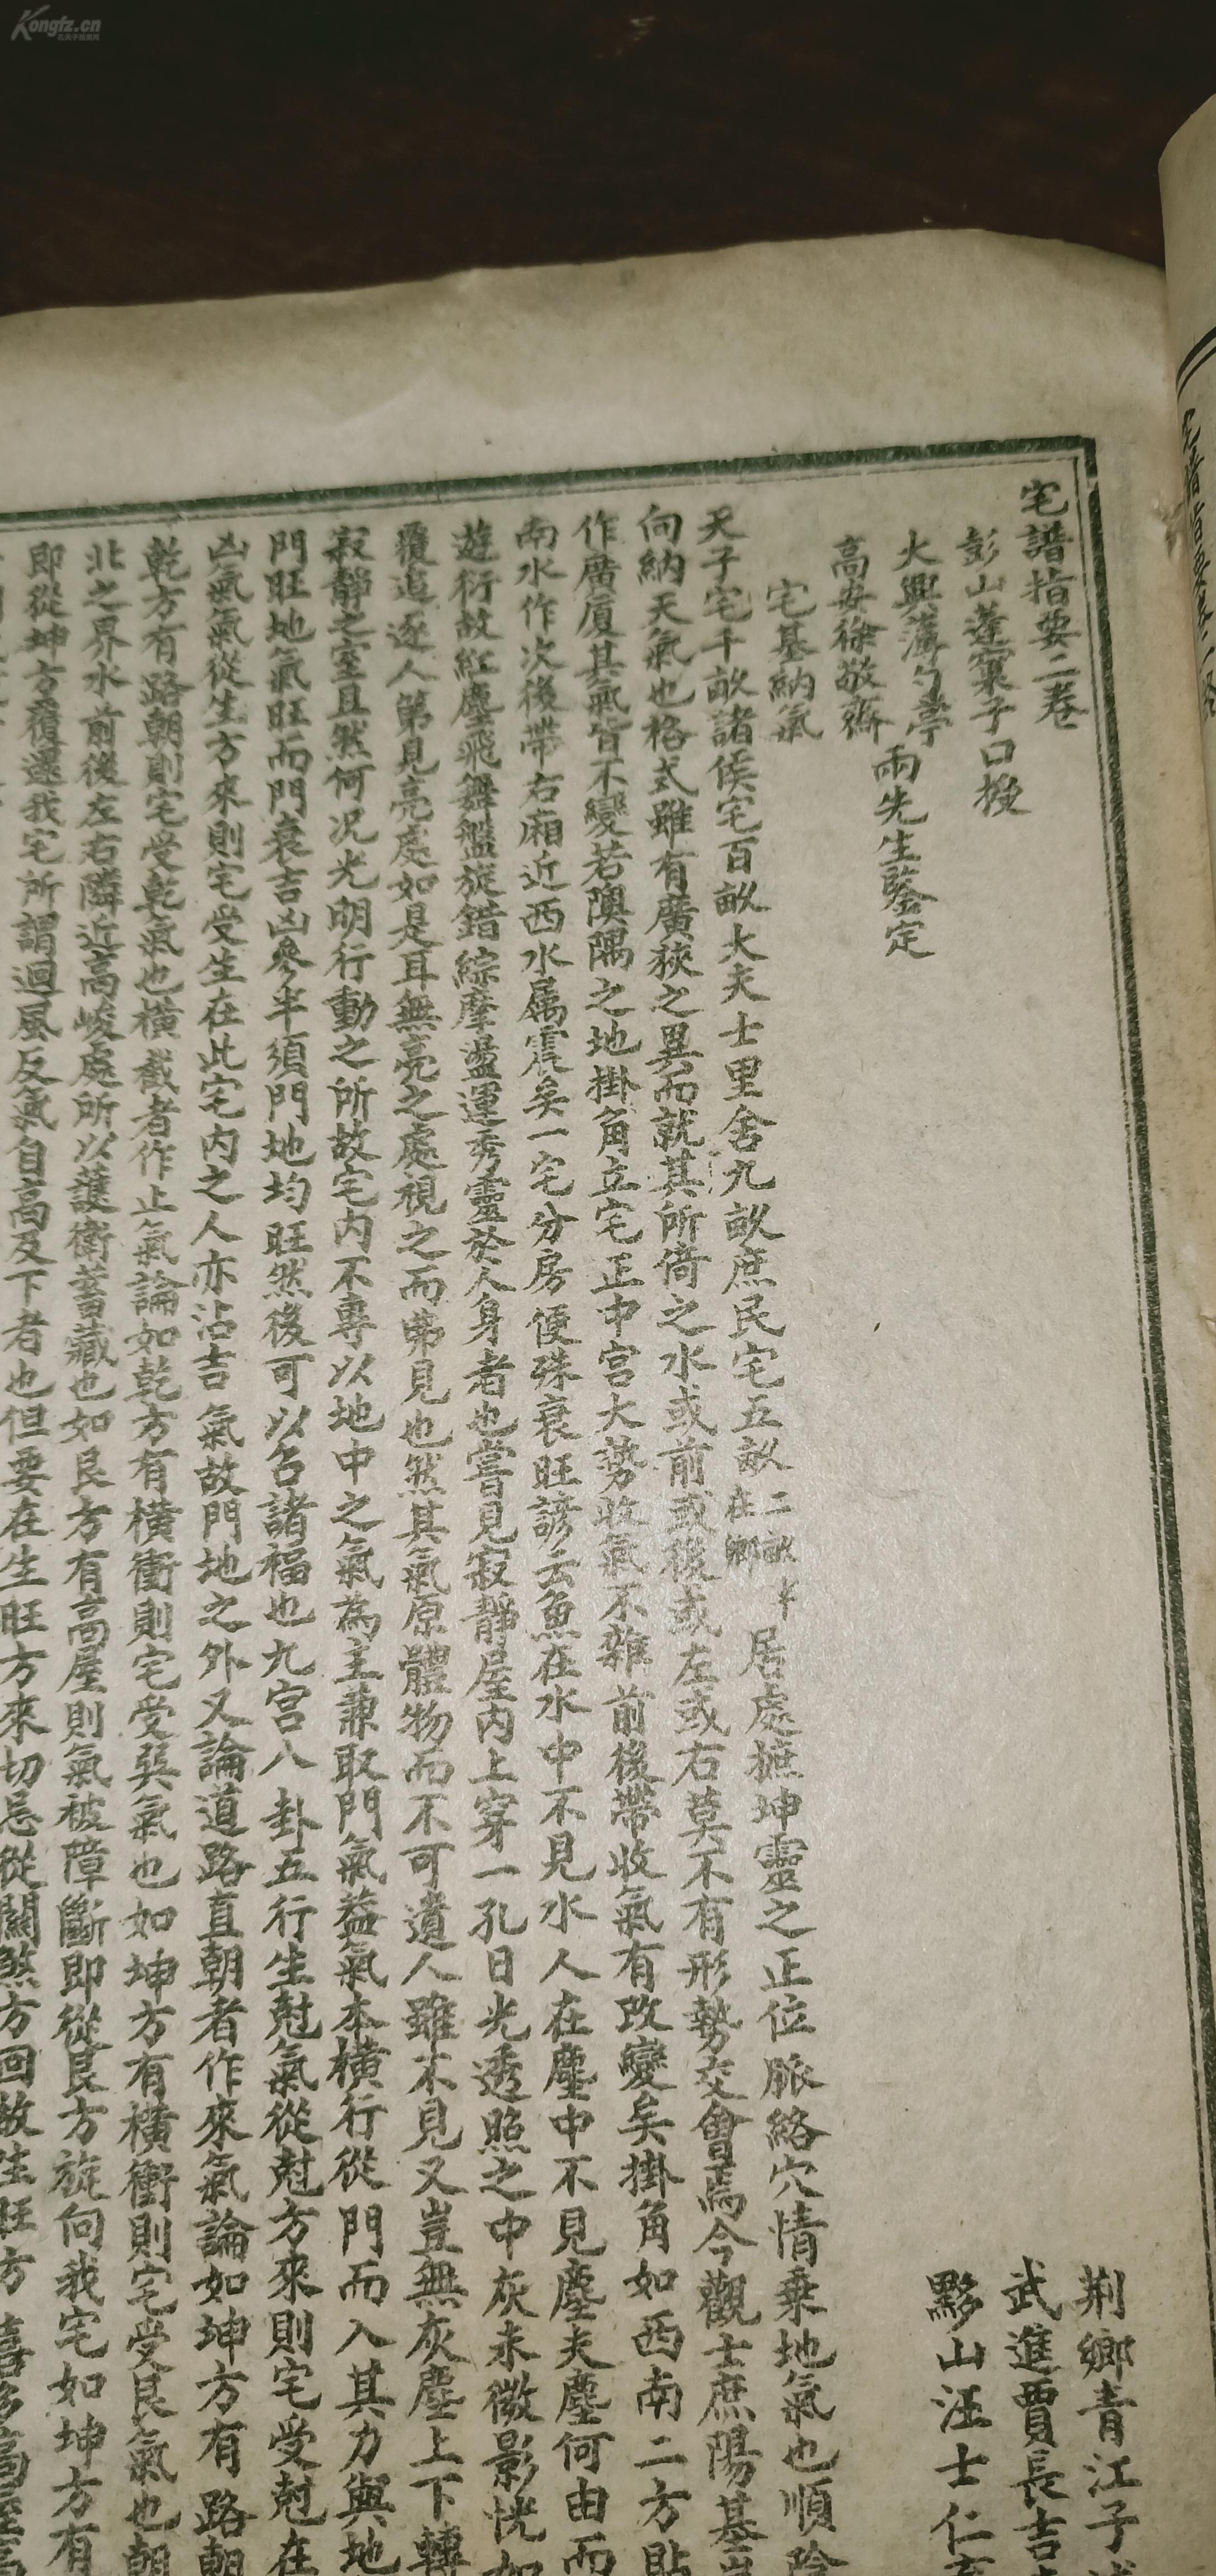 Kongfz.cn
宅譜指要二卷
荆鄉青江子
彭山蓬窠子口授
武進賈長吉
火興薄勺亭
黟山汪士仁
高安徐敬齋
兩先生鑒定
宅基納氣
天子宅千畝諸侯宅百畝大夫士里舍九畝庶民宅五畝二畝半在鄉居處摭坤靈之正位脈絡穴情乗地氣也順陰
向納天氣也格式雖有廣狹之異而就其所倚之水或前或後或左或右莫不有形勢交會焉今觀士庶陽基
作廣厦其氣皆不變若隩隅之地掛角立宅正中宮大勢收氣不雜前後帶收氣有改變矣掛角如西南二方貼
南水作次後帶右廂近西水屬震矣一宅分房便殊衰旺諺云魚在水中不見水人在塵中不見塵夫塵何由而
遊衍故紅塵飛舞盤旋錯綜摩盪運秀靈於人身者也嘗見寂靜屋内上穿一孔日光透照之中灰末微影恍如
覆追逐人第見亮處如是耳無亮之處視之而弗見也然其氣原體物而不可遺人雖不見又豈無灰塵上下轉
寂靜之室且然何况光明行動之所故宅内不專以地中之氣為主兼取門氣益氣本横行從門而入其力與地
門旺地氣旺而門衰吉凶參半須門地均旺然後可以召諸福也九宮八卦五行生尅氣從尅方來則宅受尅在
凶氣氣從生方來則宅受生在此宅内之人亦沾吉氣故門地之外又論道路直朝者作來氣論如坤方有路朝
乾方有路朝則宅受乾氣也橫截者作止氣論如乾方有横衝則宅受巽氣也如坤方有横衝則宅受艮氣也朝
北之界水前後左右隣近高峻處所以護衛蓄藏也如艮方有高屋則氣被障斷即從艮方旋向我宅如坤方有
即從坤方覆還我宅所謂迴風反氣自高及下者也但要在生旺方來切忌從關煞方回故生旺方喜多高屋